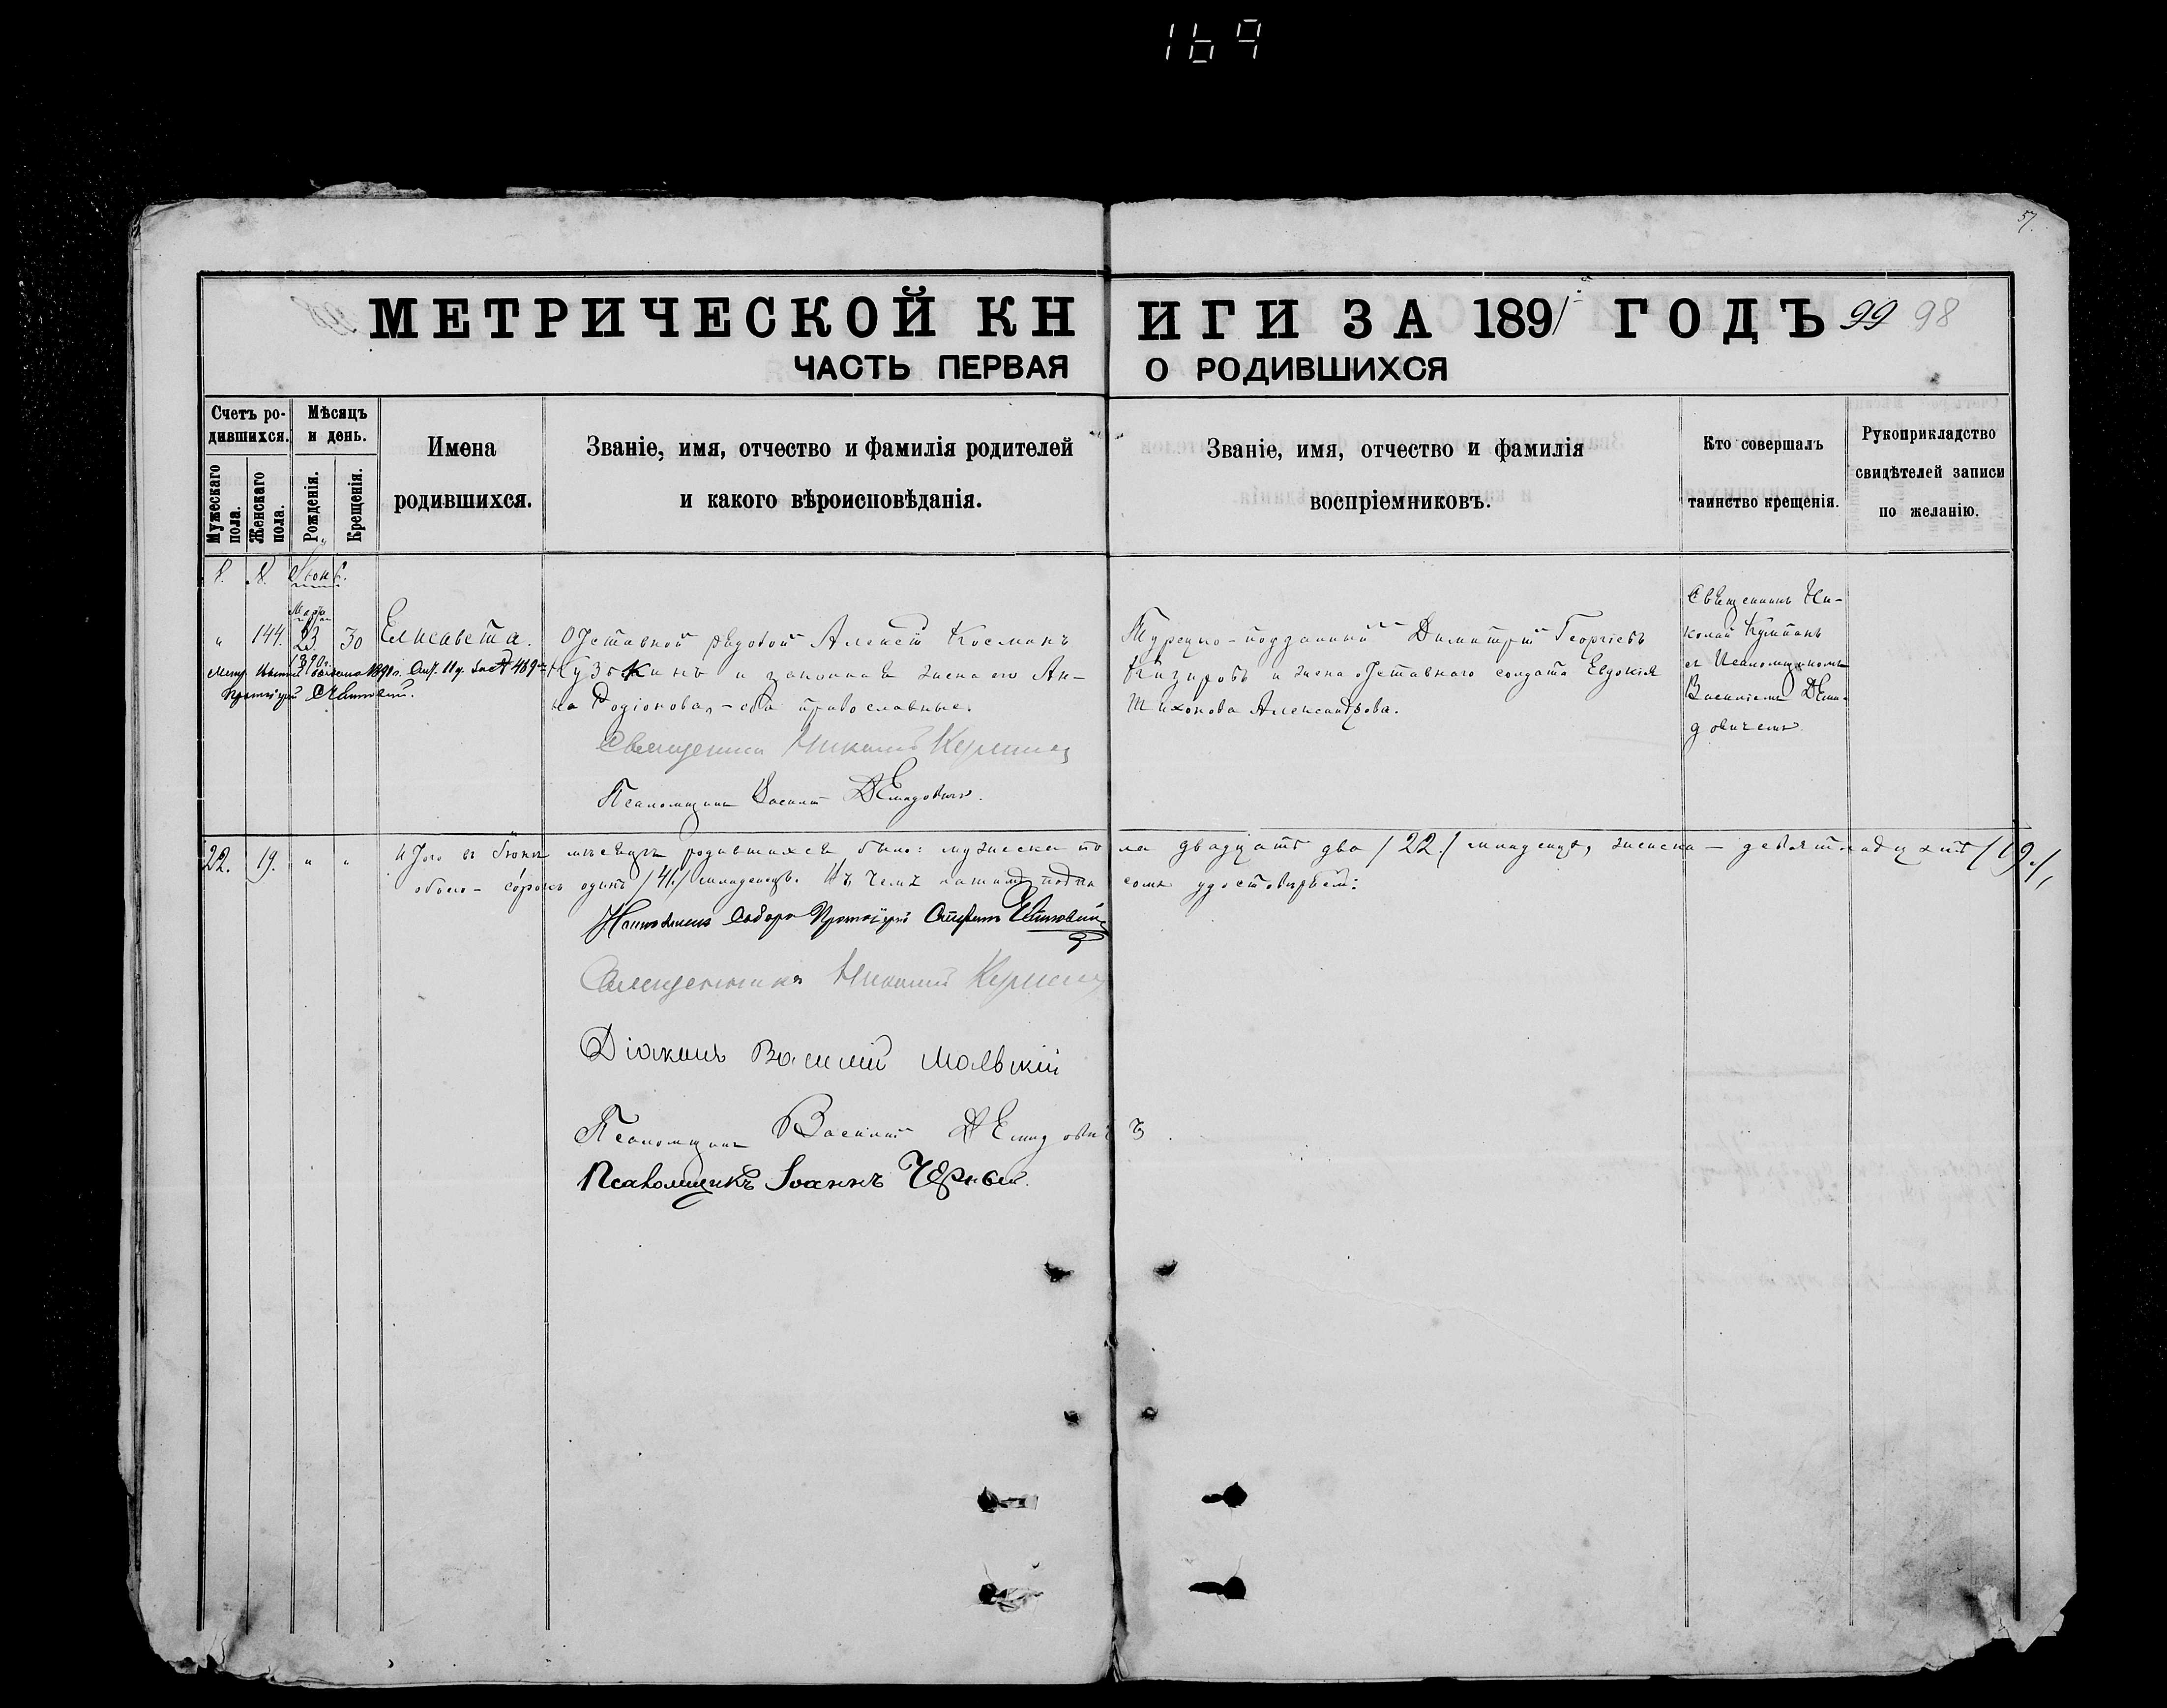 169
57.
МЕТРИЧЕСКОЙ КНИГИ ЗА 1891 ГОДЪ 99 98
ЧАСТЬ ПЕРВАЯ О РОДИВШИХСЯ
Счетъ родившихся.
Мужескаго пола.
Женскаго пола.
Мѣсяцъ и день.
Рожденія.
Крещенія.
Имена
родившихся.
Званіе, имя, отчество и фамилія родителей
и какого вѣроисповѣданія.
Званіе, имя, отчество и фамилія
воспріемниковъ.
Кто совершалъ
таинство крещенія.
Рукоприкладство
свидѣтелей записи
по желанію.
Іюнь.
" 144. 23 30 Елисавета.
Отставной рядовой Алексѣй Косминъ
Кузькинъ и законная жена его Ан-
на Родіонова, – оба православные.
Священникъ Николай
Псаломщикъ Василій Демидовичъ.
Турецко-подданный Димитрій Георгіевъ
и жена отставного солдата Евдокія
Тихонова Александрова.
Священникъ Ни-
колай
съ Псаломщикомъ
Василіемъ Деми-
довичемъ
22. 19. " " Итого въ Іюнѣ мѣсяцѣ родившихся было: мужеска пола двадцать два /22./ младенца, женска – девятнадцать /19./,
обоего – сорокъ одинъ /41./ младенецъ. Въ чемъ нашимъ подписомъ удостовѣряемъ:
Настоятель Собора Протоіерей
Священникъ Николай
Діаконъ Василій
Псаломщикъ Василій Демидовичъ.
Псаломщикъ Іоаннъ Черный.